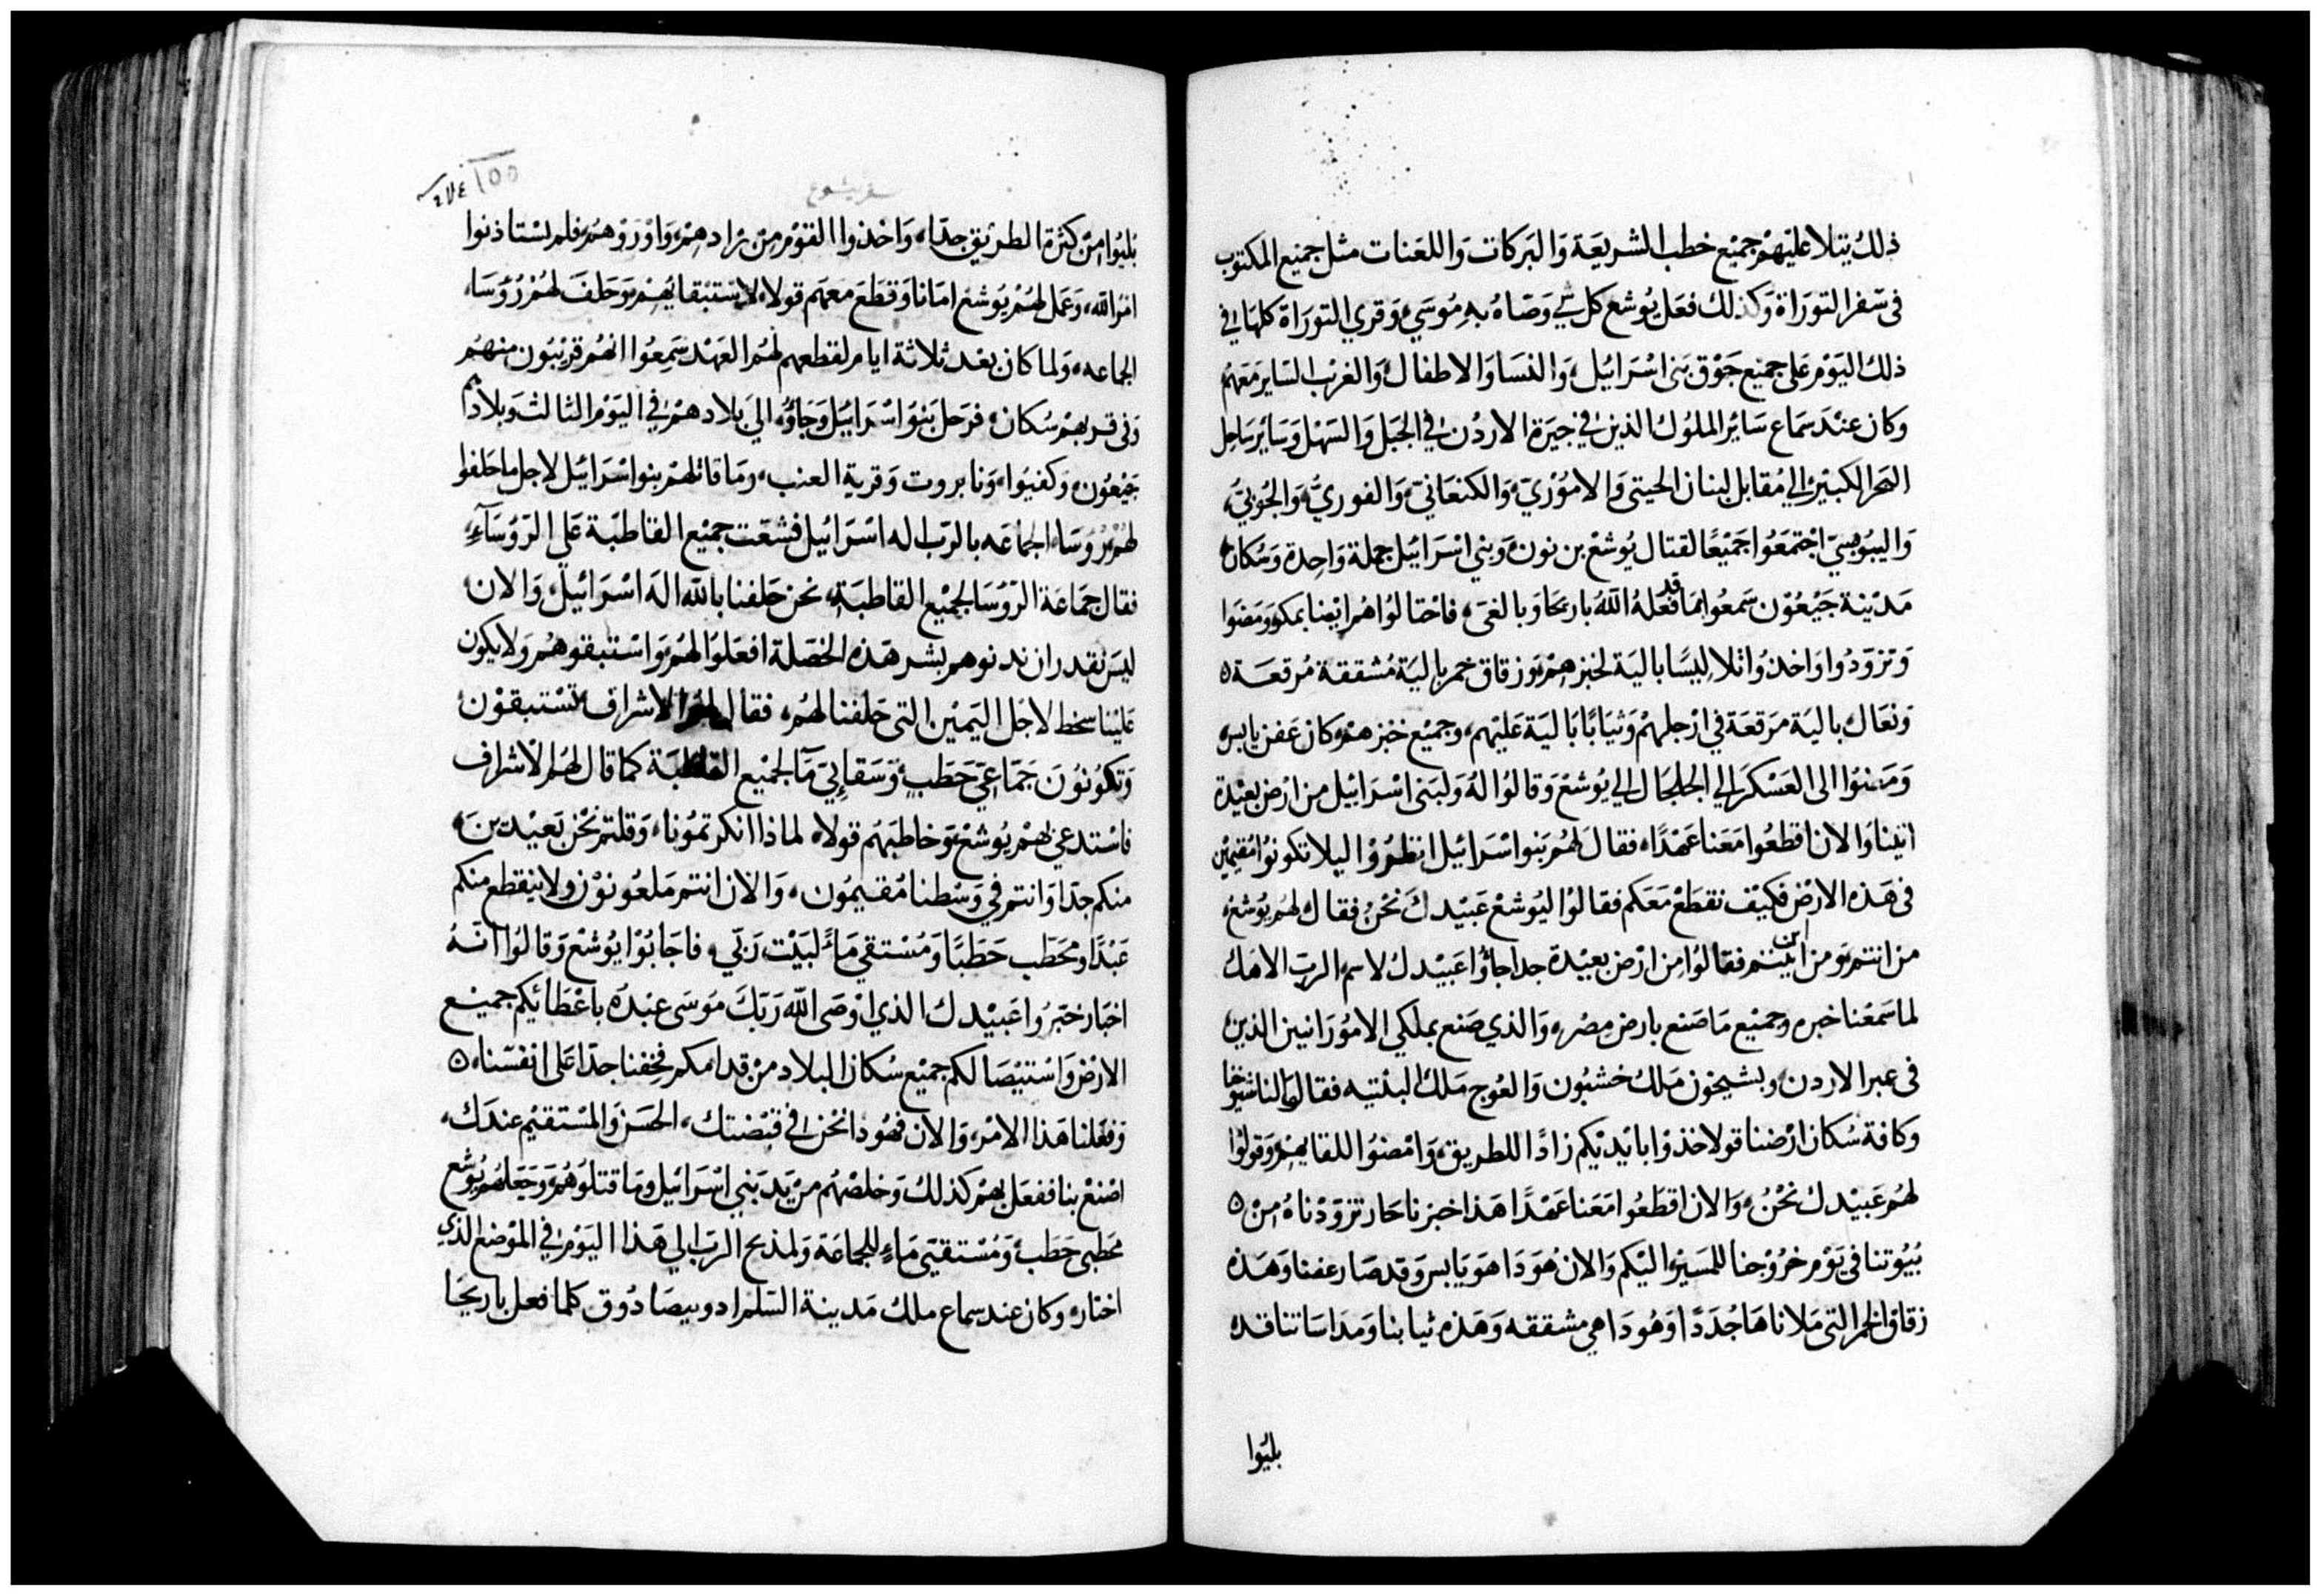 ذلك يتلا عليهم جميع خطب الشريعة والبركات واللعنات مثل جميع المكتوب
في سفر التوراة وكذلك فعل يوشع كل شي وصاه به موسي وقري التوراة كلها في
ذلك اليوم على جميع جوق بني اسرائيل والنسا والاطفال والغرب الساير معهم
وكان عند سماع ساير الملوك الذين في جيرة الاردن في الجبل والسهل وساير ساحل
البحر الكبير الي مقابل لبنان الحيتي والاموري والكنعاني والفوري والجوبي
واليبوسي اجتمعوا جميعا لقتال يوشع بن نون وبني اسرائيل جملة واحدة وسكان
مدينة جبعون سمعوا بما قد فعله الله باريحا وبالغي فاحتالوا هم ايضا بمكر ومضوا
وتزودوا واخذوا تلاليسا بالية لخبزهم وزقاق خمر بالية مشققة مرقعة
ونعال بالية مرقعة في ارجلهم وثيابا بالية عليهم وجميع خبزهم كان عفن يابس
ومضوا الى العسكر الي الجلجال الي يوشع وقالوا له ولبني اسرائيل من ارض بعيدة
اتينا والان اقطعوا معنا عهدا فقال لهم بنو اسرائيل انظروا ليلا تكونوا مقيمين
في هذه الارض فكيف نقطع معكم فقالوا ليوشع عبيدك نحن فقال لهم يوشع
من انتم ومن اين اتيتم فقالوا من ارض بعيدة جدا جاؤا عبيدك لاسم الرب الاهك
لما سمعنا خبره وجميع ما صنع بارض مصر والذي صنع بملكي الامورانيين الذين
في عبر الاردن وبشيحون ملك خشبون والعوج ملك البثنيه فقالوا لنا شيوخنا
وكافة سكان ارضنا قولا خذوا بايديكم زادا للطريق وامضوا للقايهم وقولوا
لهم عبيدك نحن والان اقطعوا معنا عهدا هذا خبزنا حار تزودناه من
بيوتنا في يوم خروجنا للمسير اليكم والان هو دا هو يابس وقد صار عفنا وهذه
زقاق الخمر التي ملاناها جددا وهو دا هي مشققه وهذه ثيابنا ومداساتنا قد
بليوا
سفر يشوع
١٥٥
بليوا من كثرة الطريق جدا واخذوا القوم من زادهم واوروهم فلم يستاذنوا
امر الله وعمل لهم يوشع امانا وقطع معهم قولا لاستبقايهم وحلف لهم رؤسا
الجماعه ولما كان بعد ثلاثة ايام لقطعهم لهم العهد سمعوا انهم قريبون منهم
وفي قربهم سكان فرحل بنو اسرائيل وجاؤ الي بلادهم في اليوم الثالث وبلادهم
جبعون وكفيوا ونابروت وقرية العنب وما قاتلهم بنو اسرائيل لاجل ما حلفوا
لهم رؤسا الجماعه بالرب اله اسرائيل فشغت جميع القاطبة علي الرؤساء
فقال جماعة الرؤسا لجميع القاطبة نحن حلفنا بالله اله اسرائيل والان
ليس نقدر ان ندنوهم بشر هذه الخصلة افعلوا لهم واستبقوهم ولا يكون
علينا سخط لاجل اليمين التي حلفنا لهم فقال لهم الاشراف تستبقون
وتكونون جماعي حطب وسقايي ما لجميع القاطبة كما قال لهم الاشراف
فاستدعي بهم يوشع وخاطبهم قولا لماذا انكرتمونا وقلتم نحن بعيدين
منكم جدا وانتم في وسطنا مقيمون والان انتم ملعونون ولا ينقطع منكم
عبدا ومحطب حطبا ومستقي ماء لبيت ربي فاجابوا يوشع وقالوا انه
اخبار ختبروا عبيدك الذي اوصى الله ربك موسى عبده باعطائيكم جميع
الارض واستيصالكم جميع سكان البلاد من قدامكم فخفنا جدا على انفسنا
وفعلنا هذا الامر والان فهو دا نحن في قبضتك الحسن والمستقيم عندك
اصنع بنا ففعل بهم كذلك وخلصهم من يد بني اسرائيل وما قتلوهم وجعلهم يوشع
محطبي حطب ومستقيي ماء للجماعة ولمذبح الرب الي هذا اليوم في الموضع الذي
اختاره وكان عند سماع ملك مدينة السلم ادوبيصادوق كلما فعل باريحا